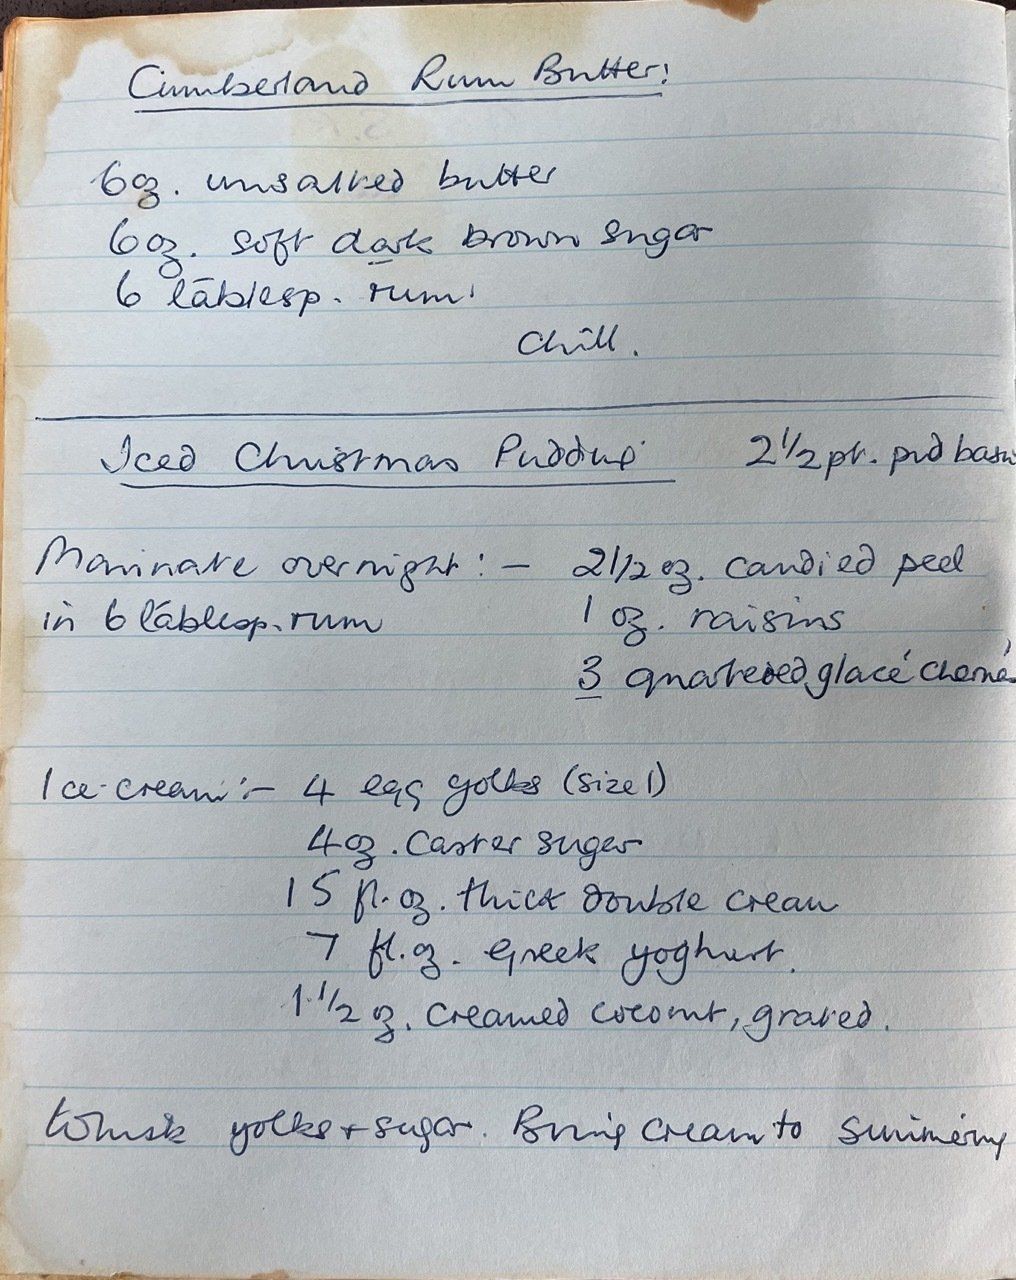 Cumberland Rum Butter:
6 oz. unsalted butter
6 oz. soft dark brown sugar
6 tablesp. rum
Chill.
Iced Christmas Pudding 2 1/2 pt. pud basin
Marinate overnight :- 2 1/2 oz. candied peel
in 6 tablesp. rum 1 oz. raisins
3 quartered glacé cherries
Ice-cream :- 4 egg yolks (size 1)
4 oz. caster sugar
15 fl. oz. thick double cream
7 fl. oz. Greek yoghurt.
1 1/2 oz. creamed coconut, grated.
Whisk yolks + sugar. Bring cream to simmering